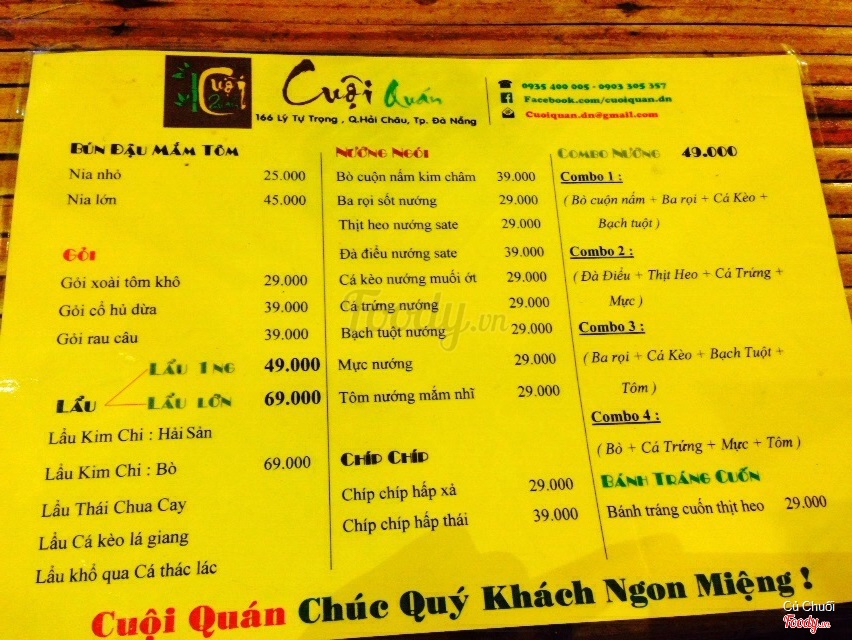 Cuội
Quán
Cuội Quán
166 Lý Tự Trọng , Q.Hải Châu, Tp. Đà Nẵng
0935 400 005 - 0903 305 357
Facebook.com/cuoiquan.dn
Cuoiquan.dn@gmail.com
BÚN ĐẬU MẮM TÔM
Nia nhỏ 25.000
Nia lớn 45.000
GỎI
Gỏi xoài tôm khô 29.000
Gỏi cổ hủ dừa 39.000
Gỏi rau câu 39.000
LẨU
LẨU 1 NG 49.000
LẨU LỚN 69.000
Lẩu Kim Chi : Hải Sản
Lẩu Kim Chi : Bò 69.000
Lẩu Thái Chua Cay
Lẩu Cá kèo lá giang
Lẩu khổ qua Cá thác lác
NƯỚNG NGÓI
Bò cuộn nấm kim châm 39.000
Ba rọi sốt nướng 29.000
Thịt heo nướng sate 29.000
Đà điểu nướng sate 39.000
Cá kèo nướng muối ớt 29.000
Cá trứng nướng 29.000
Bạch tuột nướng 29.000
Mực nướng 29.000
Tôm nướng mắm nhĩ 29.000
CHÍP CHÍP
Chíp chíp hấp xả 29.000
Chíp chíp hấp thái 39.000
COMBO NƯỚNG 49.000
Combo 1 :
( Bò cuộn nấm + Ba rọi + Cá Kèo +
Bạch tuột )
Combo 2 :
( Đà Điểu + Thịt Heo + Cá Trứng +
Mực )
Combo 3 :
( Ba rọi + Cá Kèo + Bạch Tuột +
Tôm )
Combo 4 :
( Bò + Cá Trứng + Mực + Tôm )
BÁNH TRÁNG CUỐN
Bánh tráng cuốn thịt heo 29.000
Cuội Quán Chúc Quý Khách Ngon Miệng !
Foody.vn
Củ Chuối
Foody.vn